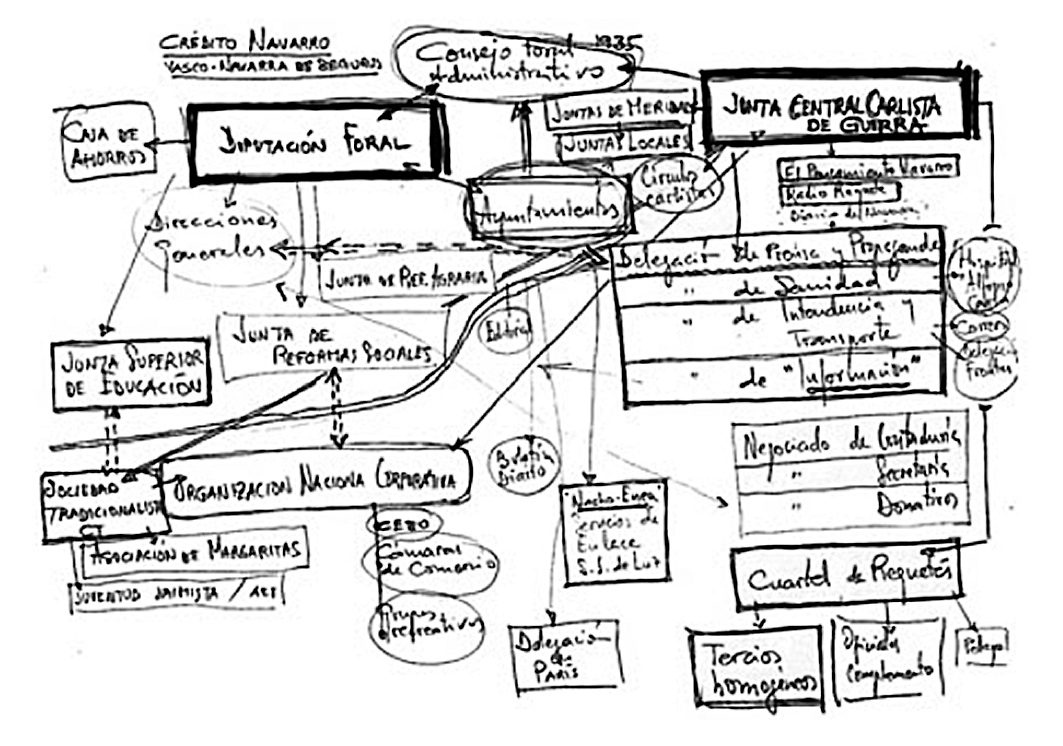 CRÉDITO NAVARRO
VASCO-NAVARRA DE SEGUROS
Consejo foral
Administrativo
1935
CAJA DE
AHORROS
DIPUTACIÓN FORAL
JUNTAS DE MERINDAD
JUNTAS LOCALES
JUNTA CENTRAL CARLISTA
DE GUERRA
Círculos
carlistas
Ayuntamientos
El Pensamiento Navarro
Radio Requeté
"Diario de Navarra"
Direcciones
Generales
JUNTA DE REF. AGRARIA
Editorial
Delegación de Prensa y Propaganda
" de Sanidad
" de Intendencia y
Transporte
" de "Información"
Hospital
Alfonso
Carlos
Correos
Fronteras
JUNTA SUPERIOR
DE EDUCACIÓN
JUNTA DE
REFORMAS SOCIALES
Negociado de Contaduría
" Secretaría
" Donativos
Boletín
SOCIEDAD
TRADICIONALISTA
ORGANIZACION NACIONA CORPORATIVA
ASOCIACIÓN DE MARGARITAS
JUVENTUD JAIMISTA / AET
Cámaras
de Comercio
Grupos
recreativos
"Nacho-Enea"
Servicios de
Enlace
S.J. de Luz
Delegación
en
París
Cuartel de Requetés
Tercios
homogéneos
Oficiales
Complemento